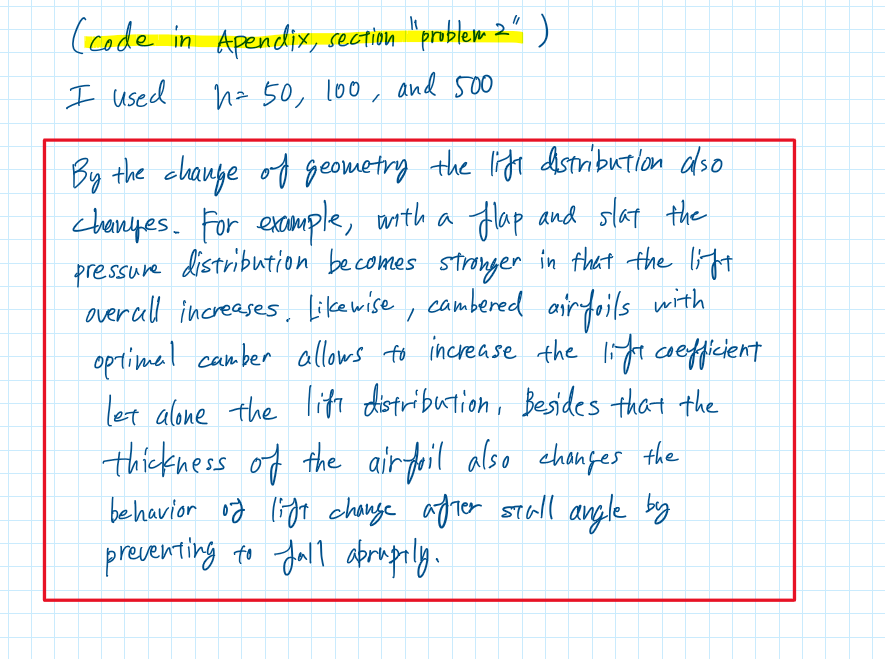 (code in Apendix, section "problem 2")
I used n= 50, 100, and 500
By the change of geometry the lift distribution also
changes. For example, with a flap and slat the
pressure distribution becomes stronger in that the lift
overall increases. Likewise, cambered airfoils with
optimal camber allows to increase the lift coefficient
let alone the lift distribution. Besides that the
thickness of the airfoil also changes the
behavior of lift change after stall angle by
preventing to fall abruptly.